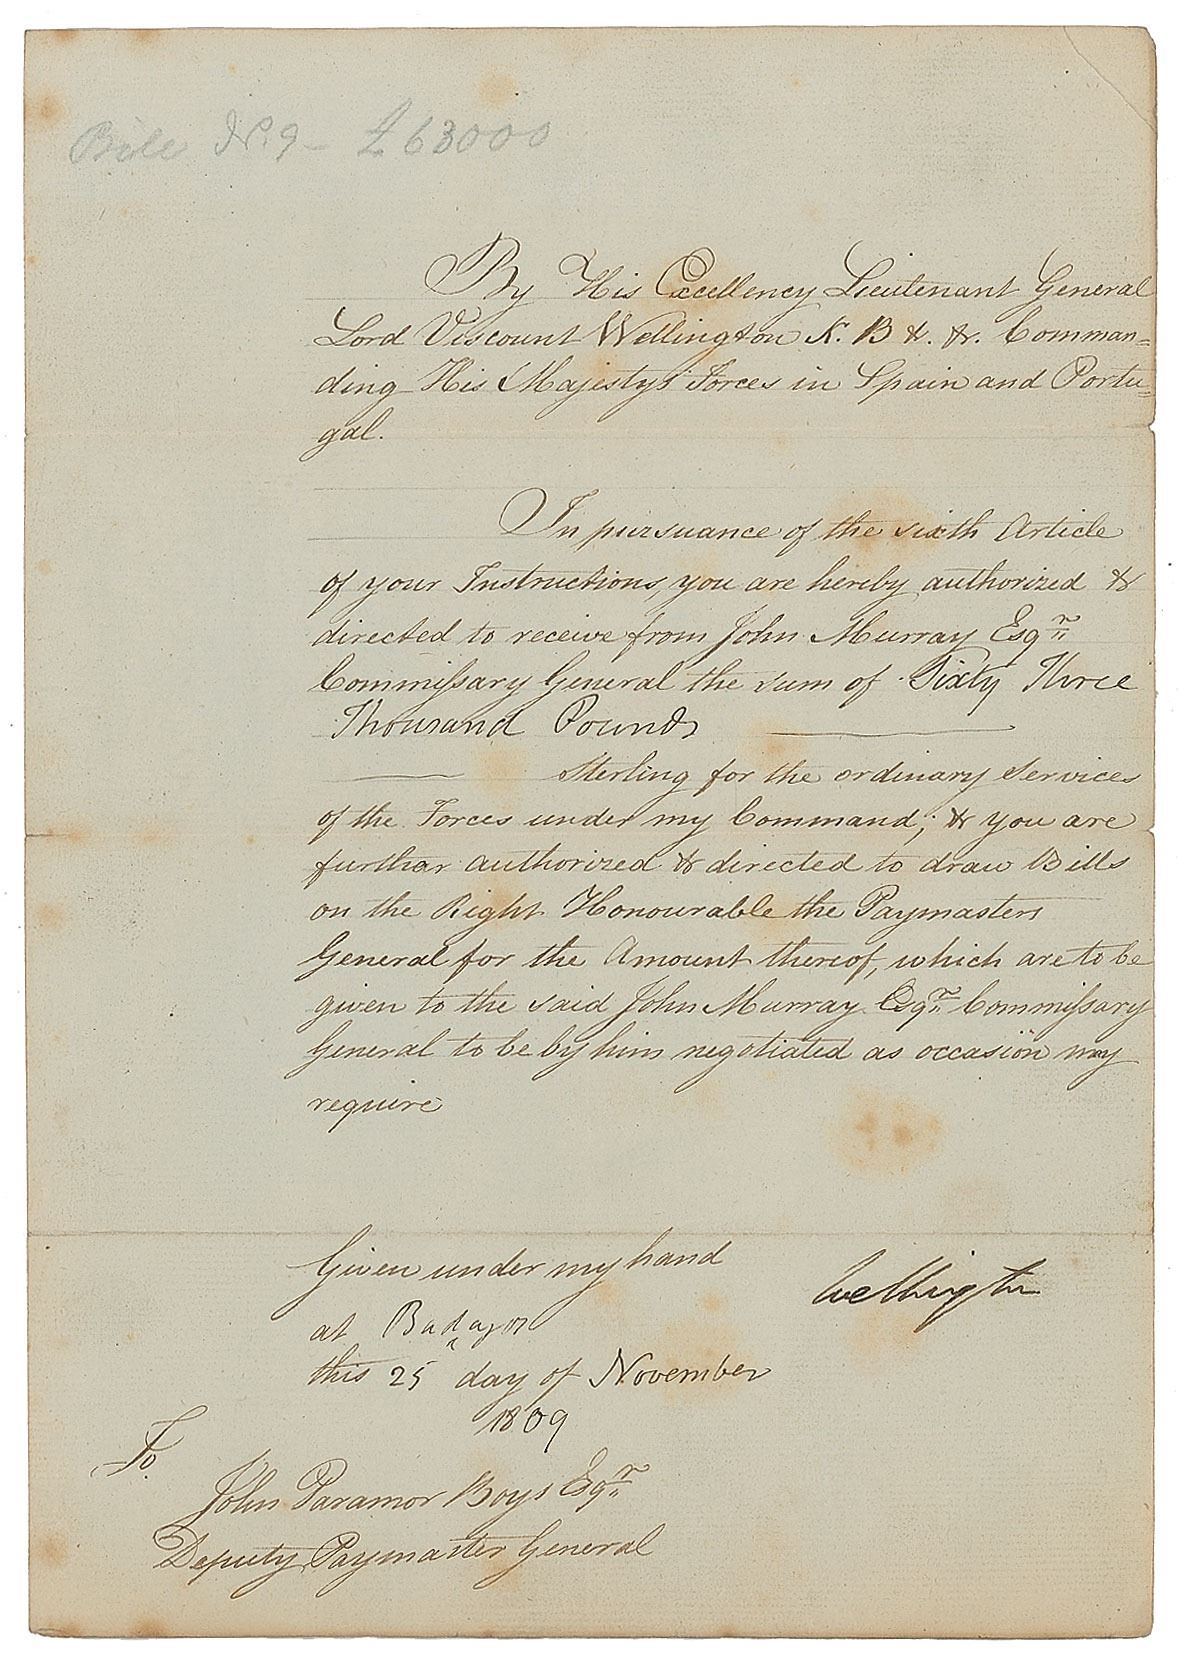 Bill No. 9 - £63000
By His Excellency Lieutenant General
Lord Viscount Wellington K. B &. &. Comman=
ding His Majesty's Forces in Spain and Portu=
gal.
In pursuance of the sixth Article
of your Instructions, you are hereby authorized &
directed to receive from John Murray Esqre.
Commissary General the sum of Sixty Three
Thousand Pounds
Sterling for the ordinary Services
of the Forces under my Command; & you are
further authorized & directed to draw Bills
on the Right Honourable the Paymasters
General for the Amount thereof, which are to be
given to the said John Murray Esqre. Commissary
General to be by him negotiated as occasion may
require
Given under my hand
Wellington
at Badajoz
this 25 day of November
1809
To.
John Paramor Boys Esqre.
Deputy Paymaster General